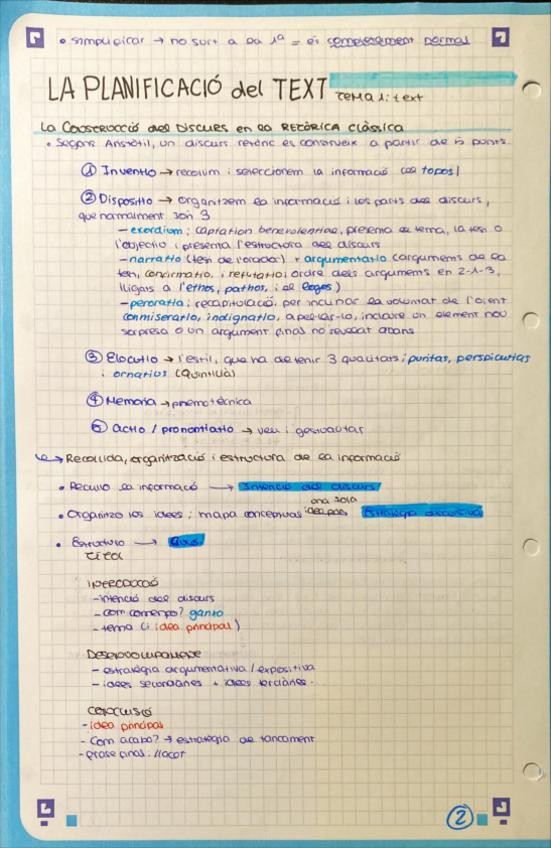 • simplificar → no surt a la 1ª = és completament normal
LA PLANIFICACIÓ del TEXT tema 1: text
La Construcció del Discurs en la RETÒRICA CLÀSSICA
• Segons Aristòtil, un discurs retòric es construeix a partir de 5 punts.
① Inventio → recollim i seleccionem la informació (els topos)
② Dispositio → organitzem la informació i les parts del discurs,
que normalment són 3
- exordium: captatio benevolentiae, presenta el tema, la tesi o
l'objectiu i presenta l'estructura del discurs
- narratio (tesi de l'orador) + argumentatio (arguments de la
tesi, confirmatio, i refutatio; ordre dels arguments en 2-1-3,
lligats a l'ethos, pathos, i el logos)
- peroratio: recapitulació, per inclinar la voluntat de l'oient
commiseratio, indignatio, apel·lar-lo, incloure un element nou
sorpresa o un argument final no revelat abans
③ Elocutio → l'estil, que ha de tenir 3 qualitats: puritas, perspicuitas
i ornatus (Quintilià)
④ Memoria → mnemotècnica
⑤ Actio / pronuntiatio → veu i gestualitat
↳ Recollida, organització i estructura de la informació
• Recullo la informació → Intenció del discurs
• Organitzo les idees: mapa conceptual una sola idea Estratègia discursiva
• Estructuro → Guió
títol
introducció
- intenció del discurs
- com començo? ganxo
- tema (i idea principal)
Desenvolupament
- estratègia argumentativa / expositiva
- idees secundàries + idees terciàries.
conclusió
- idea principal
- Com acabo? → estratègia de tancament
- frase final: llaçot
2